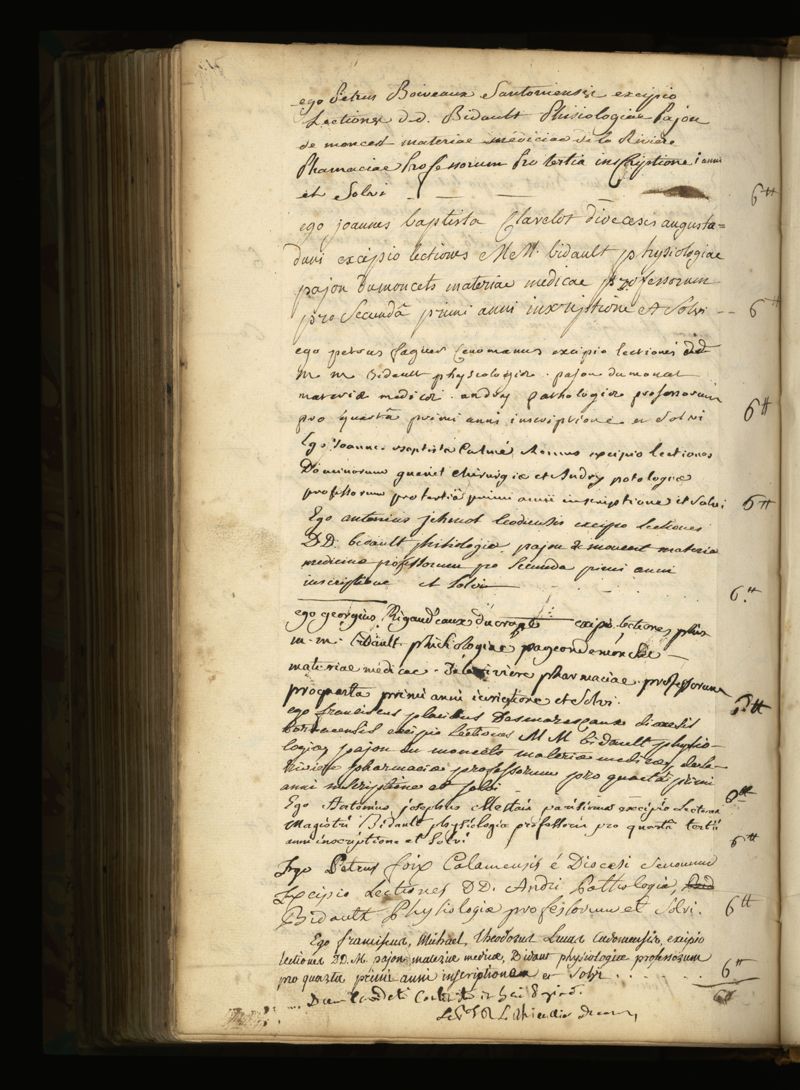 ego Petrus Boiveaux Santoniensis excipio
Lectiones d.d. Bidault Phisiologiae Pajon
de moncest materiae mediciae de la Riviere
Pharmaciae Professorum Pro tertia inscriptione i anni
et Solvi 6tt
ego joannes baptista Clavelot dioecesis augusta=
duni excipio lectiones MeM. bidault physiologiae
pajon dumoncets materiae medicae professorum
pro Secundâ primi anni inscriptione et Solvi -- 6tt
ego petrus faguer Cenomanus excipio lectiones
m m Bidault physcologiae . pajon dumoncet
materiæ medicæ . andry pathologiæ professorum
pro quartâ primi anni inscriptione et Solvi 6tt
Ego Joannes Baptista Calmé excipio lectiones
Dominorum guenet chirurgiæ et Andry patologiæ
professorum pro tertiâ primi anni inscriptione et Solvi 6tt
Ego antonius jehenot leodiensis excipio lectiones
DD. bidault phisiologiæ pajon de moncent materiæ
medicinæ professorum pro Secunda primi anni
inscriptione et Solvi 6tt
ego georgius Rigaud'eaux ducrant excipio lectiones
m. m. bidault phichiologiae pageon demoncaic
materiae medicae . delariviere pharmaciae . professorum
proquarta primi anni inscriptione et Solvi . 6tt
ego franciscus placidus Desmarescaux dioesis
excipio Lectiones M M bidault physio-
logiæ pajon du moncels materiæ medicæ, dela-
riviere pharmaciæ professorum pro quarta primi
anni inscriptione et solvi 6tt
Ego Antonius josephus parisinus excipio Lectiones
Magistri Bidault physiologiæ professoris pro quartâ tertii
anni inscriptione et Solvi 6tt
Ego Petrus foix Calamensis é Diocesi Senonum
Excipio Lectiones DD. Andri Pathologiæ,
Bidault Physiologiæ professorum et Solvi. 6tt
Ego franciscus, Michael, Theodorus Cadomensis, excipio
lectiones DD. M. pajon materiæ medicæ, Bidaut physiologiæ professorum
pro quarta primi anni inscriptione et Solvi . . . . . 6tt